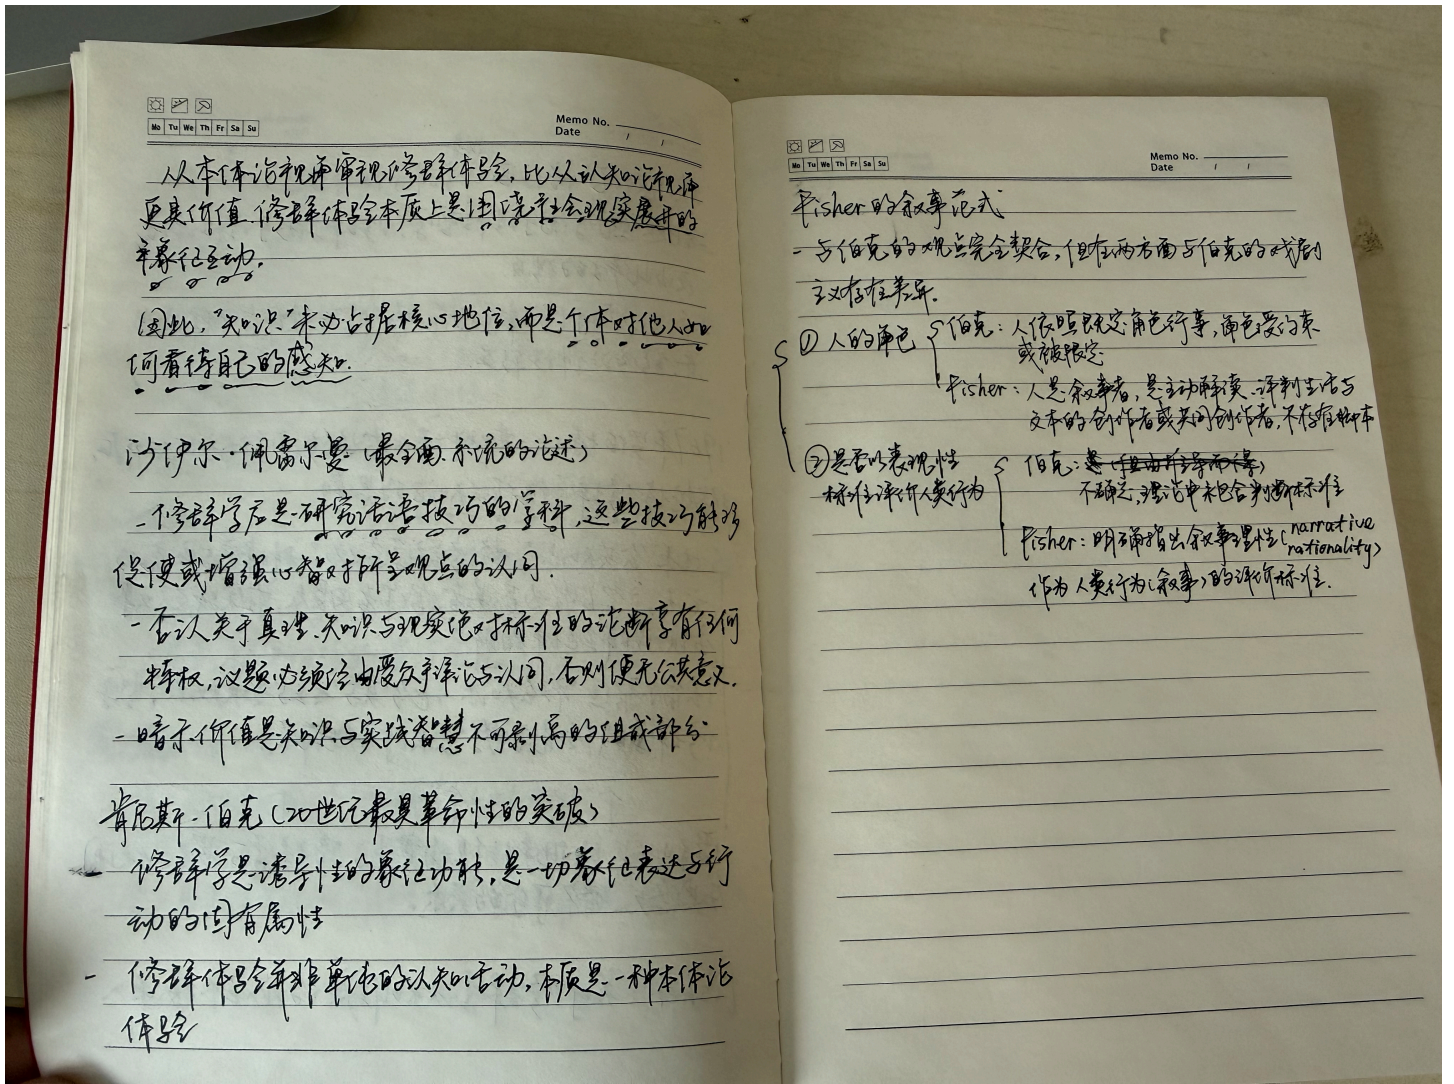 Mo Tu We Th Fr Sa Su
Memo No.
Date / /
从本体论视角审视修辞体验，比从认知论视角
更具价值．修辞体验本质上是围绕社会现实展开的
象征互动．
因此，"知识"未必占据核心地位，而是个体对他人如
何看待自己的感知．
沙伊尔·佩雷尔曼（最全面、系统的论述）
- 修辞学应是研究话语技巧的学科，这些技巧能够
促使或增强心智对所呈观点的认同．
- 否认关于真理、知识与现实绝对标准的论断享有任何
特权，议题必须经由受众评论与认同，否则便无公共意义．
- 暗示价值是知识与实践智慧不可剥离的组成部分
肯尼斯·伯克（20世纪最具革命性的突破）
- 修辞学是诱导性的象征功能，是一切象征表达与行
动的固有属性
- 修辞体验并非单纯的认知活动，本质是一种本体论
体验
Mo Tu We Th Fr Sa Su
Memo No.
Date / /
Fisher的叙事范式
- 与伯克的观点完全契合，但在两方面与伯克的戏剧
主义存在差异．
① 人的角色
伯克：人依照既定角色行事，角色受约束
或被限定
Fisher：人是叙事者，是主动解读、评判生活与
文本的创作者或共同创作者，不存在脚本
② 是否以表现性
标准评价人类行为
伯克：
不确定，理论中未包含判断标准
Fisher：明确指出叙事理性（narrative
rationality）
作为人类行为（叙事）的评价标准．